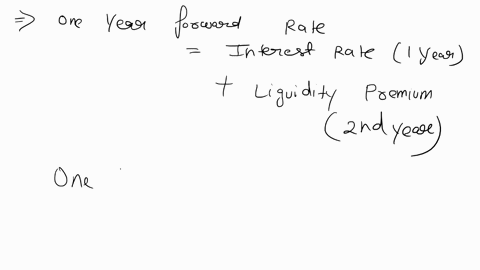 ⇒ One Year forward Rate
= Interest Rate (1 Year)
+ Liquidity Premium
(2nd year)
One